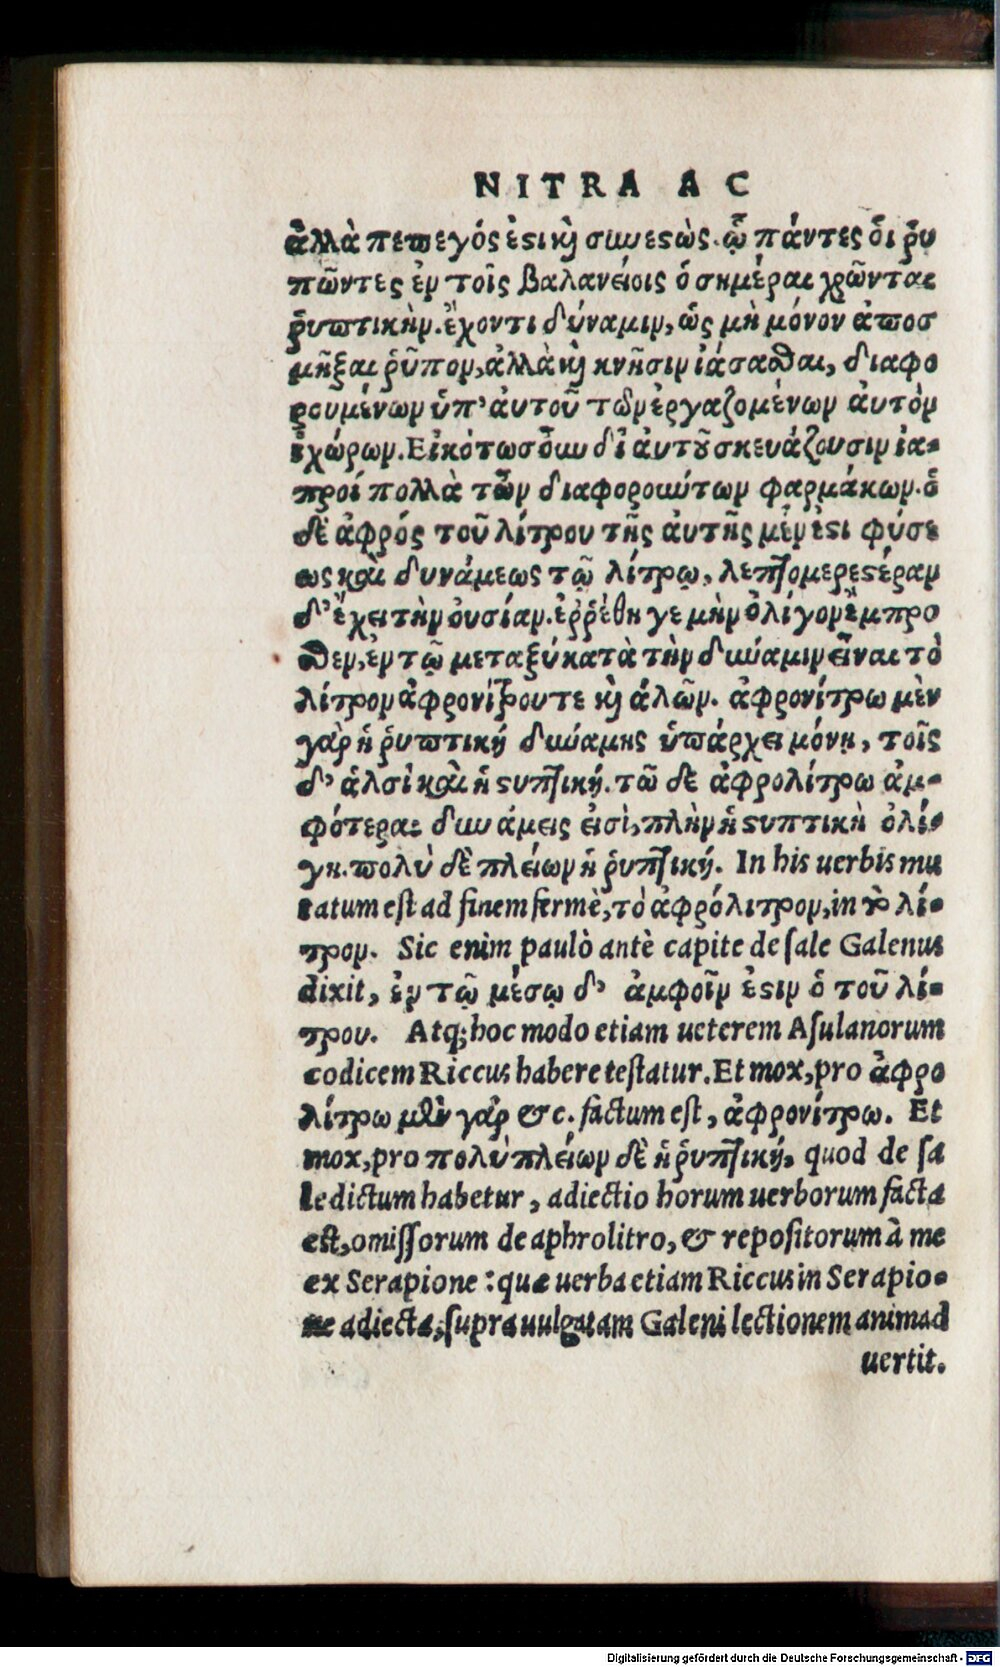 NITRA AC
ἀλλὰ πεπηγός ἐστι καὶ συνεστὼς. ᾧ πάντες ὅι ῥυ
πῶντες ἐν τοῖς βαλανείοις ὁσημέραι χρῶνται
ῥυπτικὴν. ἔχοντι δύναμιν, ὡς μὴ μόνον ἀποσ
μῆξαι ῥῦπον, ἀλλὰ καὶ κνῆσιν ἰάσασθαι, διαφο
ρουμένων ὑπ' ἀυτοῦ τῶν ἐργαζομένων ἀυτὸν
ἰχώρων. Εἰκότωσ οὖν δἰ ἀυτοῦ σκευάζουσιν ἰα-
τροί πολλὰ τῶν διαφορούντων φαρμάκων. ὁ
δὲ ἀφρός τοῦ λίτρου τῆς ἀυτῆς μέν ἐστι φύσε
ως καὶ δυνάμεως τῷ λίτρῳ, λεπτομερεστέραν
δ' ἔχει τὴν ὀυσίαν. ἐῤῥέθη γε μὴν ὀλίγον ἔμπρο
σθεν, ἐν τῷ μεταξύ κατὰ τὴν δύναμιν εἶναι τὸ
λίτρον ἀφρονίτρου τε καὶ ἁλῶν. ἀφρονίτρω μὲν
γὰρ ἡ ῥυπτική δύναμης ὑπάρχει μόνη, τοῖς
δ' ἁλσὶ καὶ ἡ στυπτική. τῶ δὲ ἀφρολίτρω ἀμ-
φότεραι δυνάμεις εἰσὶ, πλὴν ἡ στυπτικὴ ὀλί-
γη. πολὺ δὲ πλείων ἡ ῥυπτική. In his uerbis mu
tatum est ad finem fermè, τὸ ἀφρόλιτρον, in τὸ λί-
τρον. Sic enim paulò antè capite de sale Galenus
dixit, ἐν τῷ μέσῳ δ' ἀμφοῖν ἐστιν ὁ τοῦ λί-
τρου. Atq; hoc modo etiam ueterem Asulanorum
codicem Riccus habere testatur. Et mox, pro ἀφρο
λίτρω μὲν γάρ &c. factum est, ἀφρονίτρω. Et
mox, pro πολὺ πλείων δὲ ἡ ῥυπτική, quod de sa
le dictum habetur, adiectio horum uerborum facta
est, omissorum de aphrolitro, & repositorum à me
ex Serapione: quæ uerba etiam Riccus in Serapio-
ne adiecta, supra uulgatam Galeni lectionem animad
uertit.
Digitalisierung gefördert durch die Deutsche Forschungsgemeinschaft - DFG